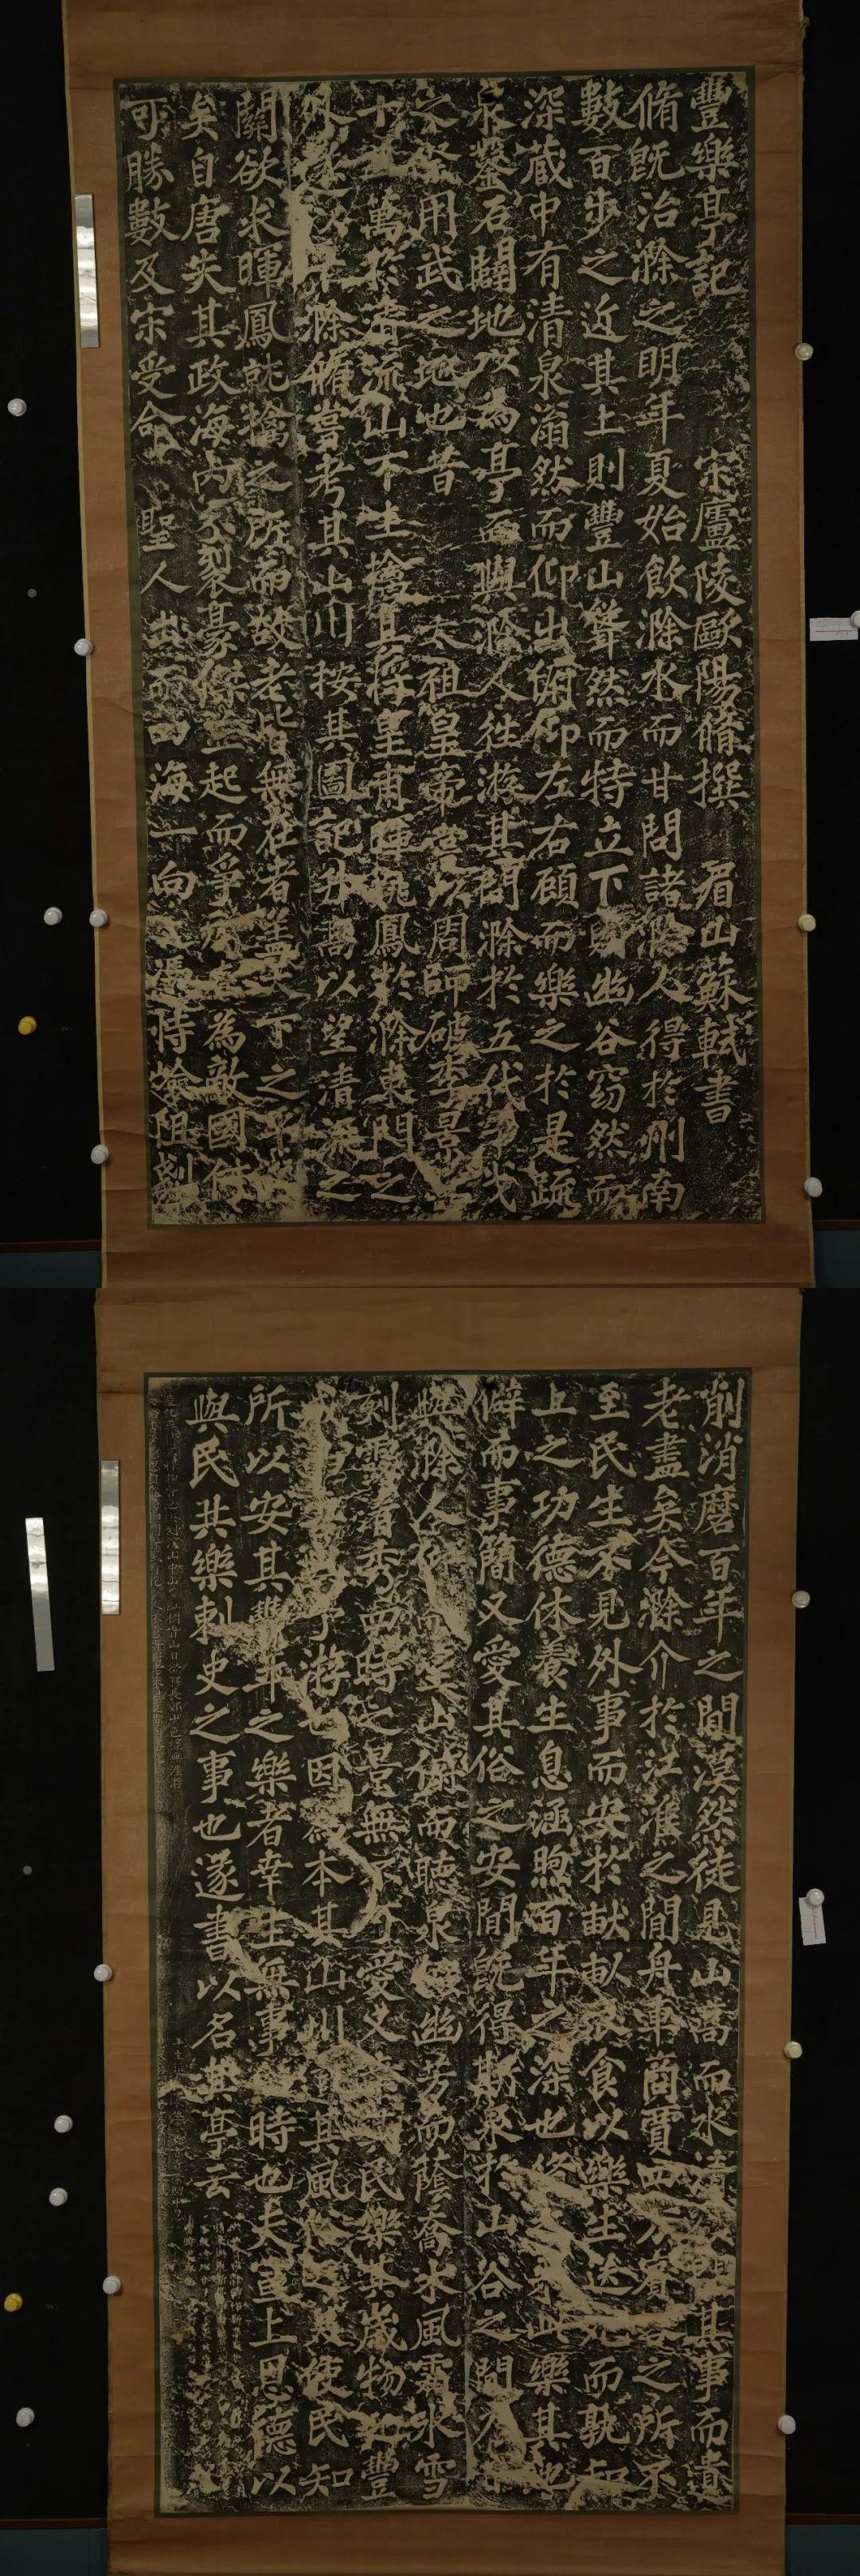 豐樂亭記 宋廬陵歐陽脩撰 眉山蘇軾書
脩既治滁之明年夏始飲滁水而甘問諸滁人得於州南
數百步之近其上則豐山聳然而特立下則幽谷窈然而
深蔵中有清泉滃然而仰出俯仰左右顧而樂之於是疏
泉鑿石闢地以為亭而與滁人徃游其間滁於五代干戈
之際用武之地也昔 太祖皇帝嘗以周師破李景
萬於清流山下生擒其將皇甫暉姚鳳於滁東門之
外遂以平滁脩嘗考其山川按其圖記升髙以望清流之
關欲求暉鳳就擒之所而故老皆無在者盖天下之平
矣自唐失其政海内分裂豪傑並起而爭 為敵國
可勝數及宋受命 聖人出而四海一向之憑恃險阻剗
削消磨百年之間漠然徒見山髙而水清 問其事而遺
老盡矣今滁介於江淮之間舟車商賈四方賓 之所不
至民生不見外事而安於畎畝衣食以樂生送死而孰知
上之功德休養生息涵煦百年之深也脩之来此樂其地
僻而事簡又愛其俗之安閒既得斯泉於山谷之間
與滁人仰而望山俯而聽泉掇幽芳而蔭喬木風霜冰雪
刻露清秀四時之景無不可愛又幸其民樂其歲物 豐
予游也因為本其山川道其風俗之美使民知
所以安其豐年之樂者幸生無事 時也夫宣上恩德以
與民共樂刺史之事也遂書以名其亭云